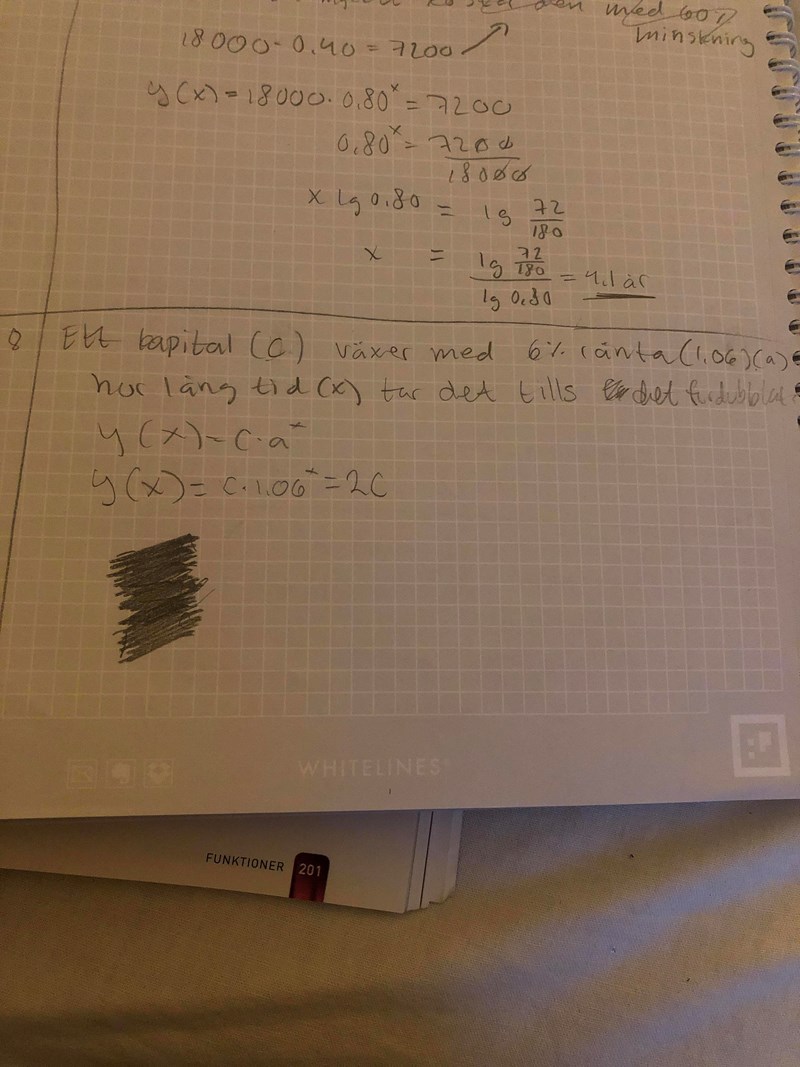 med 60%
minskning
18000 · 0,40 = 7200
y(x) = 18000 · 0,80^x = 7200
0,80^x = 7200/18000
x lg 0,80 = lg 72/180
x = lg 72/180 / lg 0,80 = 4,1 år
8 Ett kapital (C) växer med 6% ränta (1,06)(a)
hur lång tid (x) tar det tills det fördubblat
y(x) = C · a^x
y(x) = C · 1,06^x = 2C
WHITELINES
FUNKTIONER 201